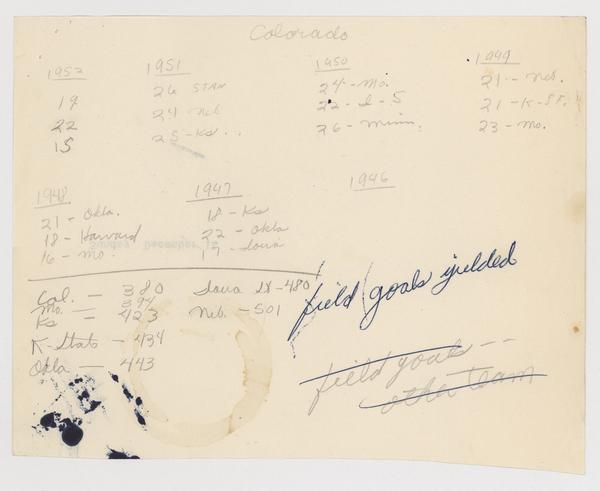 Colorado
1952
19
22
15
1951
26 STAN
24 Neb
25 - Ks..
1950
24 - Mo.
22 - I - S
26 - Minn.
1949
21 - Neb.
21 - K-ST.
23 - Mo.
1948
21 - Okla.
18 - Harvard
16 - Mo.
1947
18 - Ks
22 - Okla
17 - Iowa
1946
Sunday December
Col. — 380
Mo. — 394
Ks — 423
K-State - 434
Okla — 443
Iowa St - 480
Neb. - 501
field goals yielded
field goals --
other team